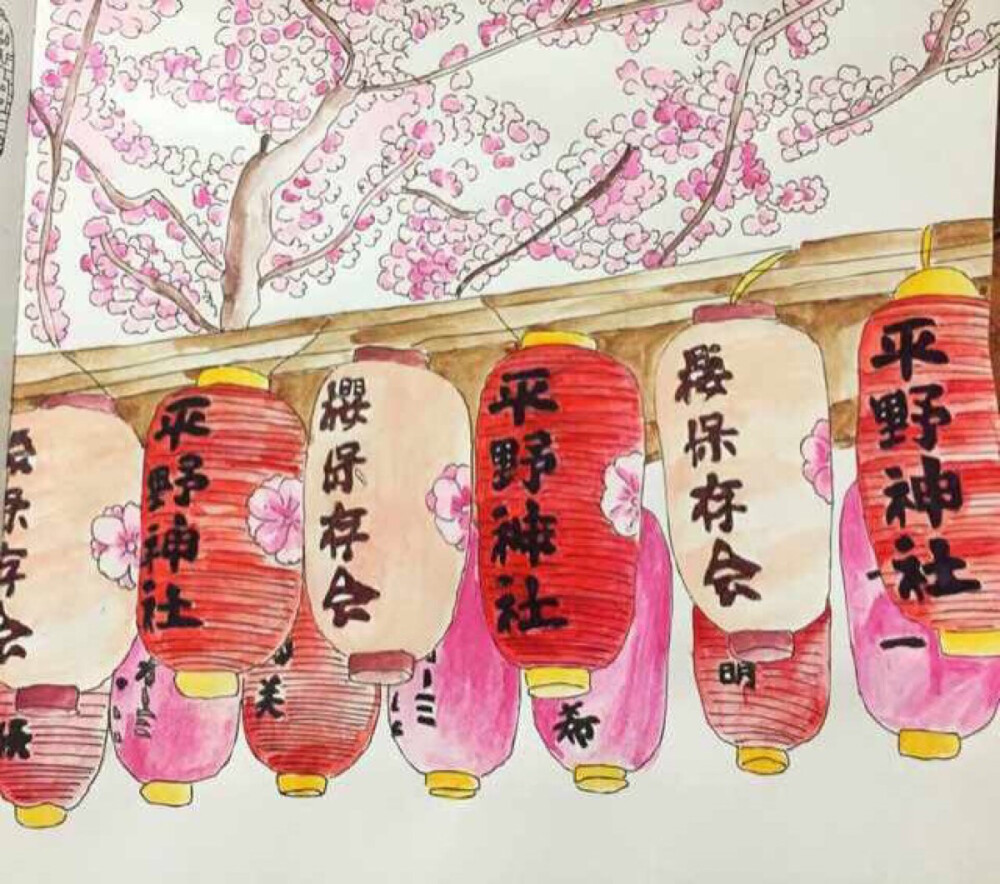 保存会
平野神社
櫻保存会
平野神社
櫻保存会
平野神社
美
三
希
明
一